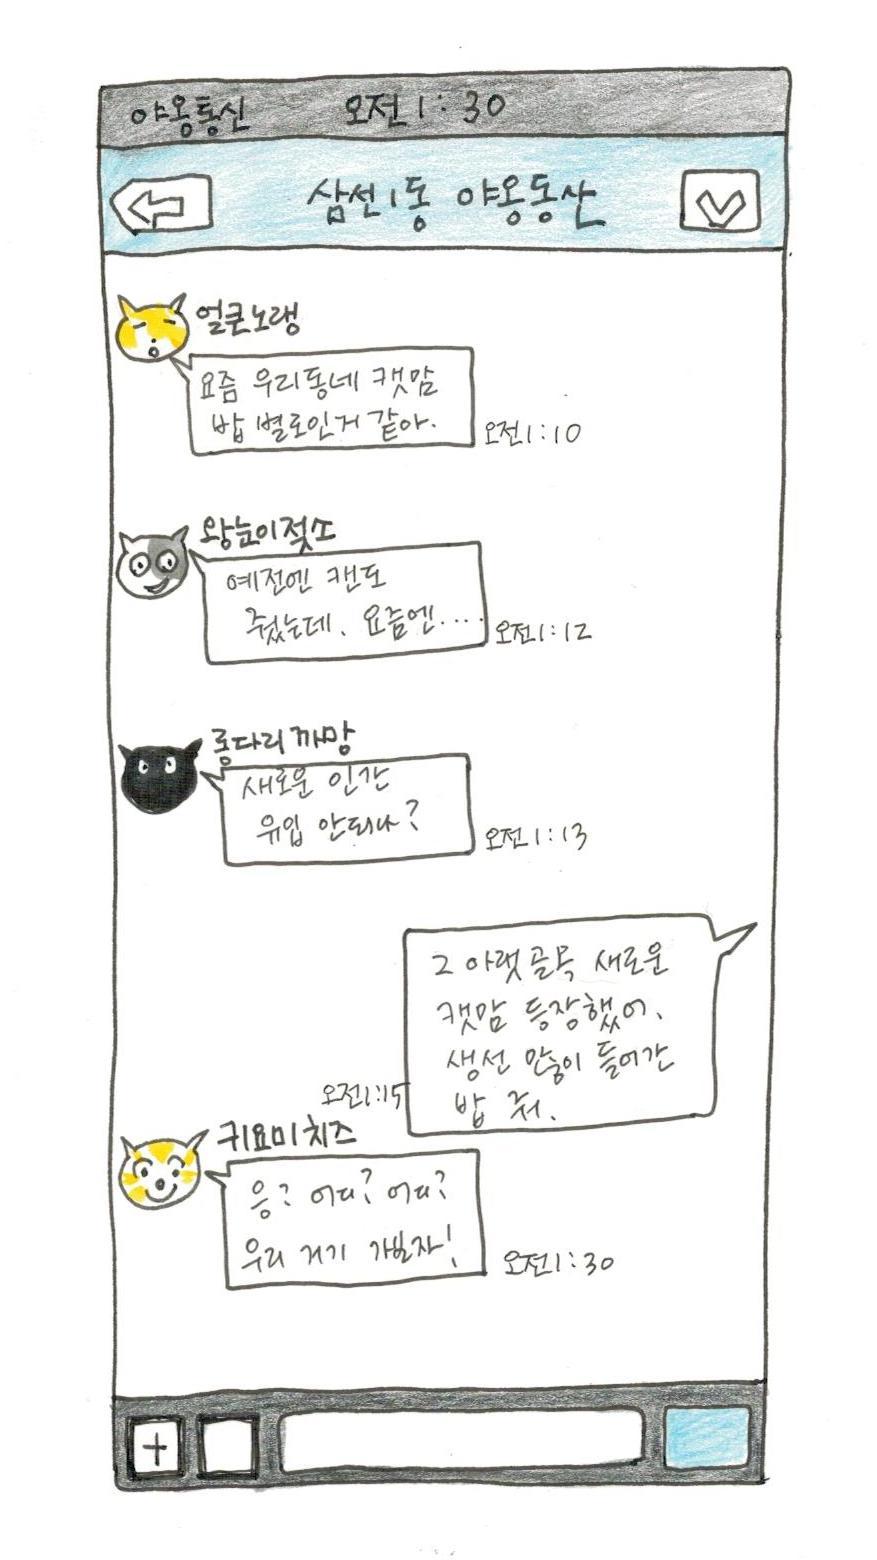 야옹통신 오전1:30
삼선1동 야옹동산
얼큰노랭
요즘 우리동네 캣맘
밥 별로인거 같아.
오전1:10
왕눈이젖소
예전엔 캔도
줬는데. 요즘엔....
오전1:12
롱다리까망
새로운 인간
유입 안되나?
오전1:13
그 아랫골목 새로운
캣맘 등장했어.
생선 많이 들어간
밥 줘.
오전1:15
귀요미치즈
응? 어디? 어디?
우리 거기 가보자!
오전1:30